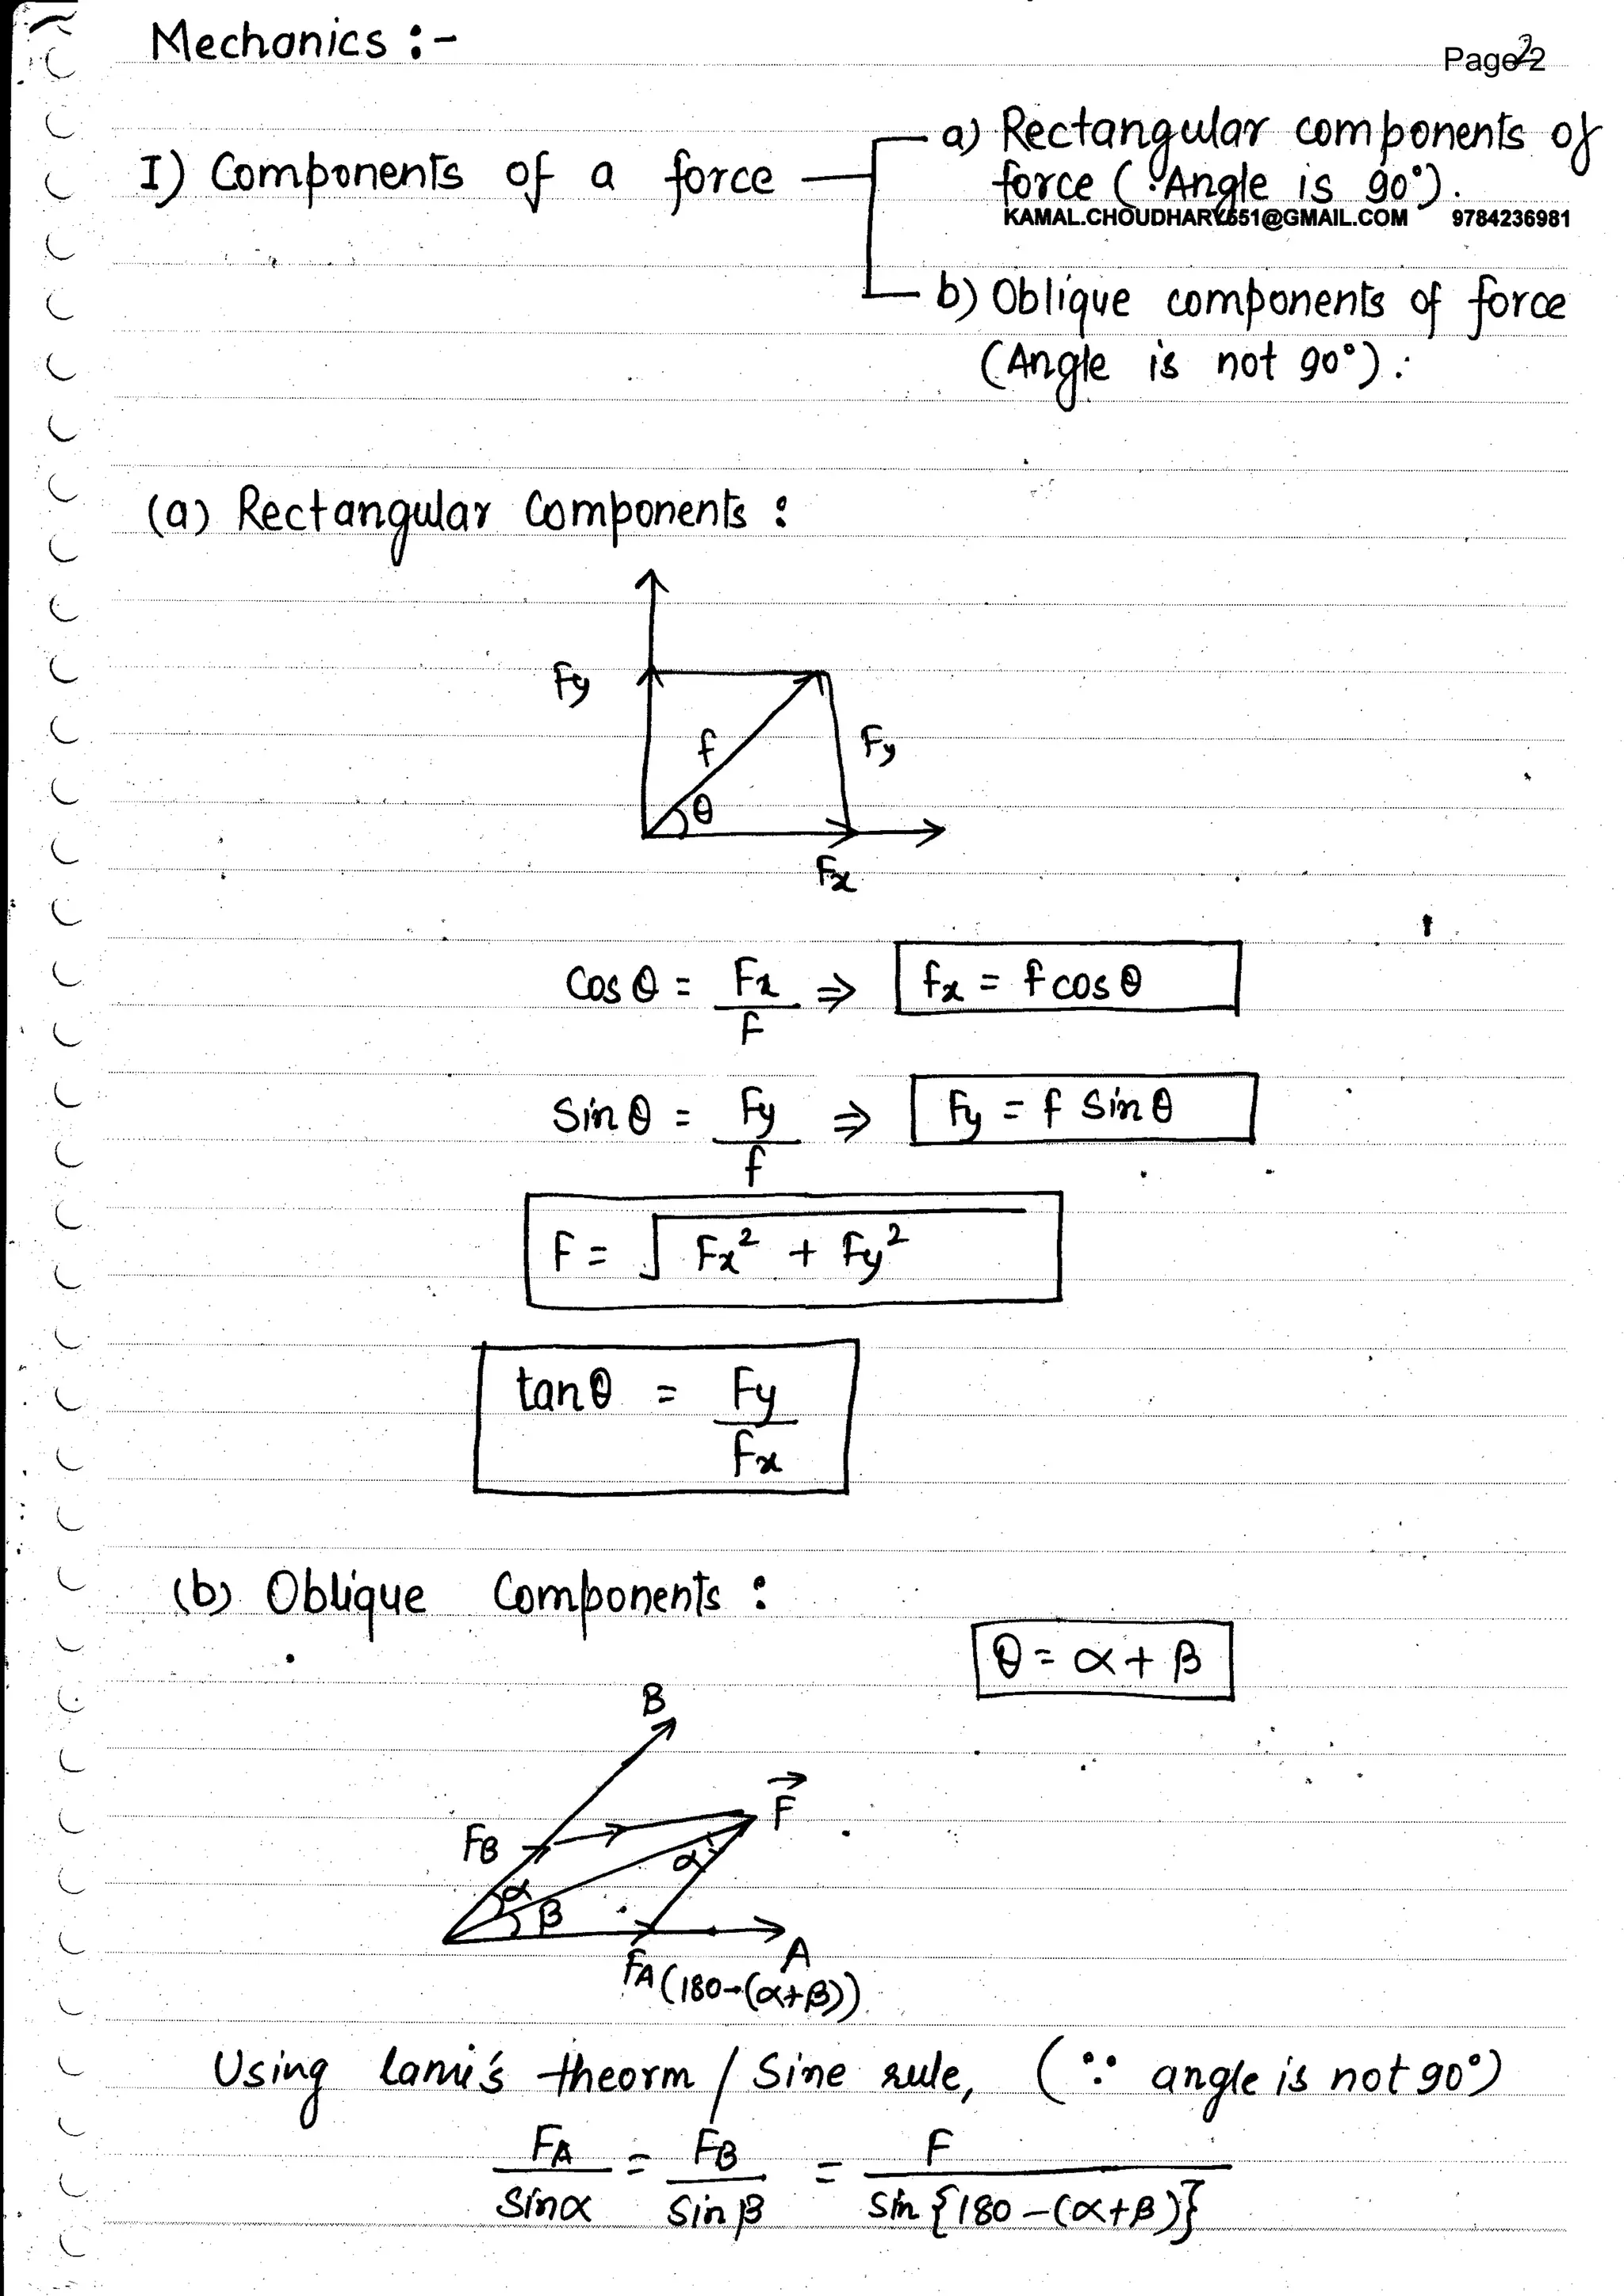 Mechanics :-
Page 2
2
I) Components of a force
a) Rectangular components of
force (∵ Angle is 90°).
KAMAL.CHOUDHARY.551@GMAIL.COM 9784236981
b) Oblique components of force
(Angle is not 90°).
(a) Rectangular Components :
Fy
f
Fy
θ
Fx
Cos θ = Fx/F ⇒ fx = f cos θ
Sin θ = Fy/f ⇒ Fy = f Sin θ
F = √(Fx² + Fy²)
tan θ = Fy/Fx
(b) Oblique Components :
θ = α + β
B
F⃗
FB
α
α
β
A
FA (180-(α+β))
Using Lami's theorm / Sine rule, (∵ angle is not 90°)
FA/Sinα = FB/Sin β = F/Sin {180-(α+β)}